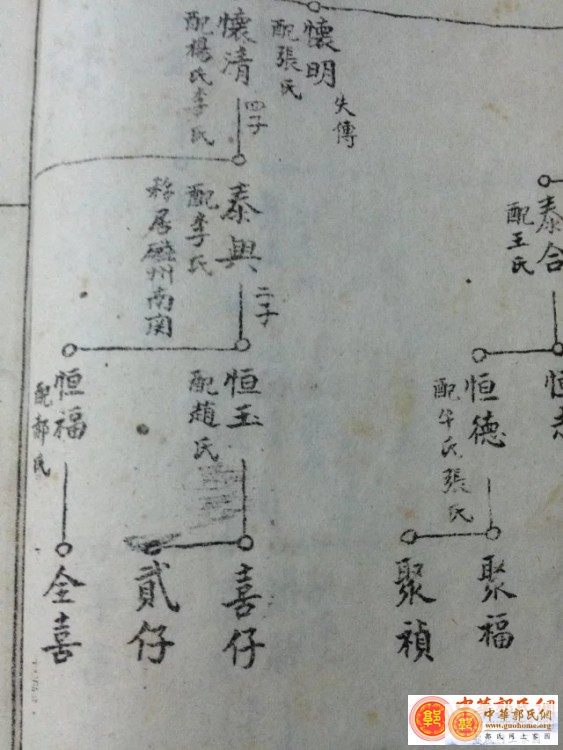 懷明
配張氏
失傳
懷清
配楊氏李氏
四子
泰興
配李氏
移居磁州南関
二子
泰合
配王氏
恒玉
配趙氏
恒福
配郝氏
恒德
配牛氏張氏
恒志
喜仔
貳仔
全喜
聚福
聚禎
中華郭氏網
郭
中華郭氏網
www.guohome.org
郭氏网上家园